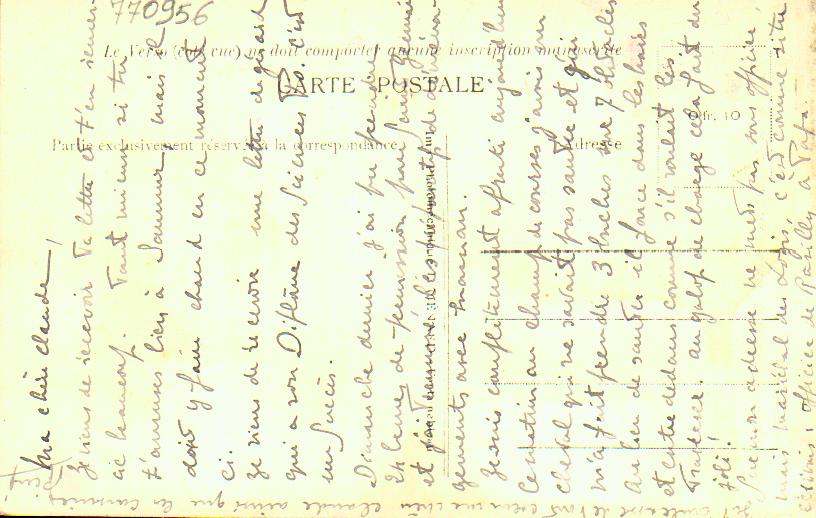 770956
Le Verso (côté vue) ne doit comporter aucune inscription manuscrite
CARTE POSTALE
0 fr. 10
Partie exclusivement réservée à la correspondance.
Adresse
Ma chère Claude,
Je viens de recevoir ta lettre et t'en remercie
beaucoup. Tant mieux si tu
t'amuses bien à Saumur, mais il
doit y faire chaud en ce moment
ci.
Je viens de recevoir une lettre de
qui a son Diplôme des Sciences Po. c'est
un succès.
Dimanche dernier j'ai pu prendre
24 heures de permission pour
et
gements avec maman.
Je suis complètement abruti aujourd'hui
Ce matin au champ de courses j'avais un
cheval qui ne savait pas sauter et qui
m'a fait prendre 3 bûches sur 7 obstacles
Au lieu de sauter il fonce dans les haies
et entre dedans comme s'il voulait les
traverser. au galop de charge cela fait du
joli!
Sur mon adresse ne mets pas sous officier,
mais maréchal des Logis, c'est comme si tu
écrivais: officier de à Papa.
Je t'embrasse de tout coeur ma chère Claude ainsi que les